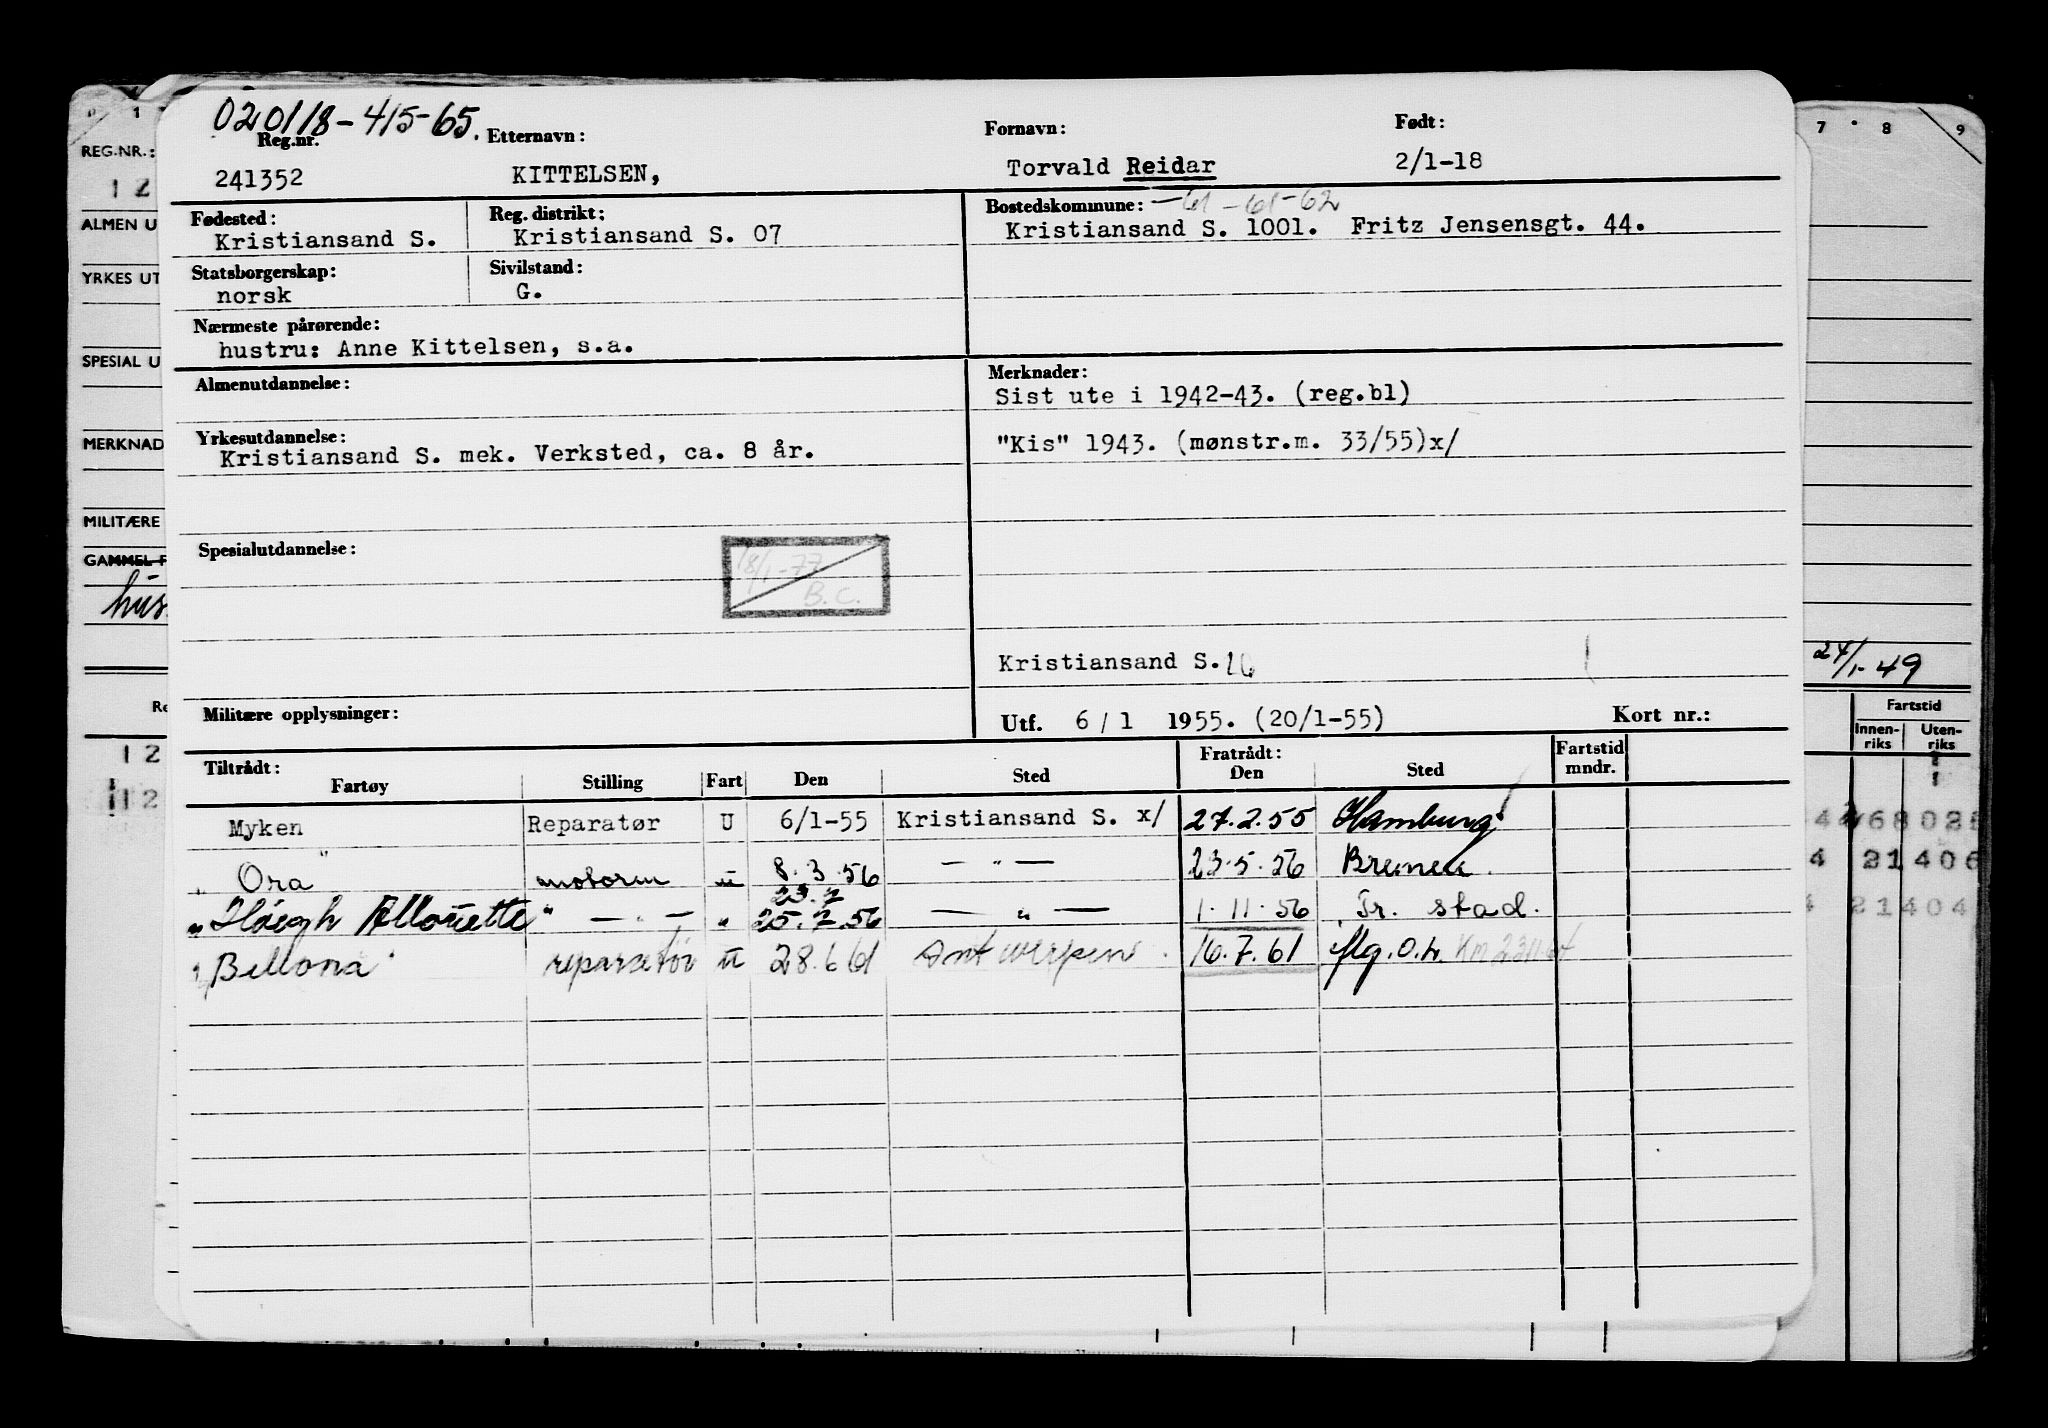 020118-415-65.
Reg.nr. Etternavn: Fornavn: Født:
241352 KITTELSEN, Torvald Reidar 2/1-18
Fødested: Reg. distrikt: Bostedskommune: -61-61-62
Kristiansand S. Kristiansand S. 07 Kristiansand S. 1001. Fritz Jensensgt. 44.
Statsborgerskap: Sivilstand:
norsk G.
Nærmeste pårørende:
hustru: Anne Kittelsen, s.a.
Almenutdannelse: Merknader:
Sist ute i 1942-43. (reg.bl)
Yrkesutdannelse:
Kristiansand S. mek. Verksted, ca. 8 år. "Kis" 1943. (mønstr.m. 33/55)x/
Spesialutdannelse:
18/1-77
B.C.
Kristiansand S. 16
Militære opplysninger: Utf. 6/1 1955. (20/1-55) Kort nr.:
Tiltrådt: Fratrådt: Fartstid
Fartøy Stilling Fart Den Sted Den Sted mndr.
Myken Reparatør U 6/1-55 Kristiansand S. x/ 27.2.55 Hamburg
" Ora " motorm u 8.3.56 — " — 23.5.56 Bremen.
23.7
" Høegh Allouette " — " — " 25.7.56 — " — 1.11.56 Fr. stad.
" Bellona " reparatør u 28.6.61 Antwerpen. 16.7.61 flg.O.L.
REG.NR.:
ALMEN U
YRKES UT
SPESIAL U
MERKNAD
MILITÆRE
GAMMEL F
hus
Re
12
12
12
7 8 9
24/1-49
Fartstid
Innen-riks Uten-riks
21406
21404